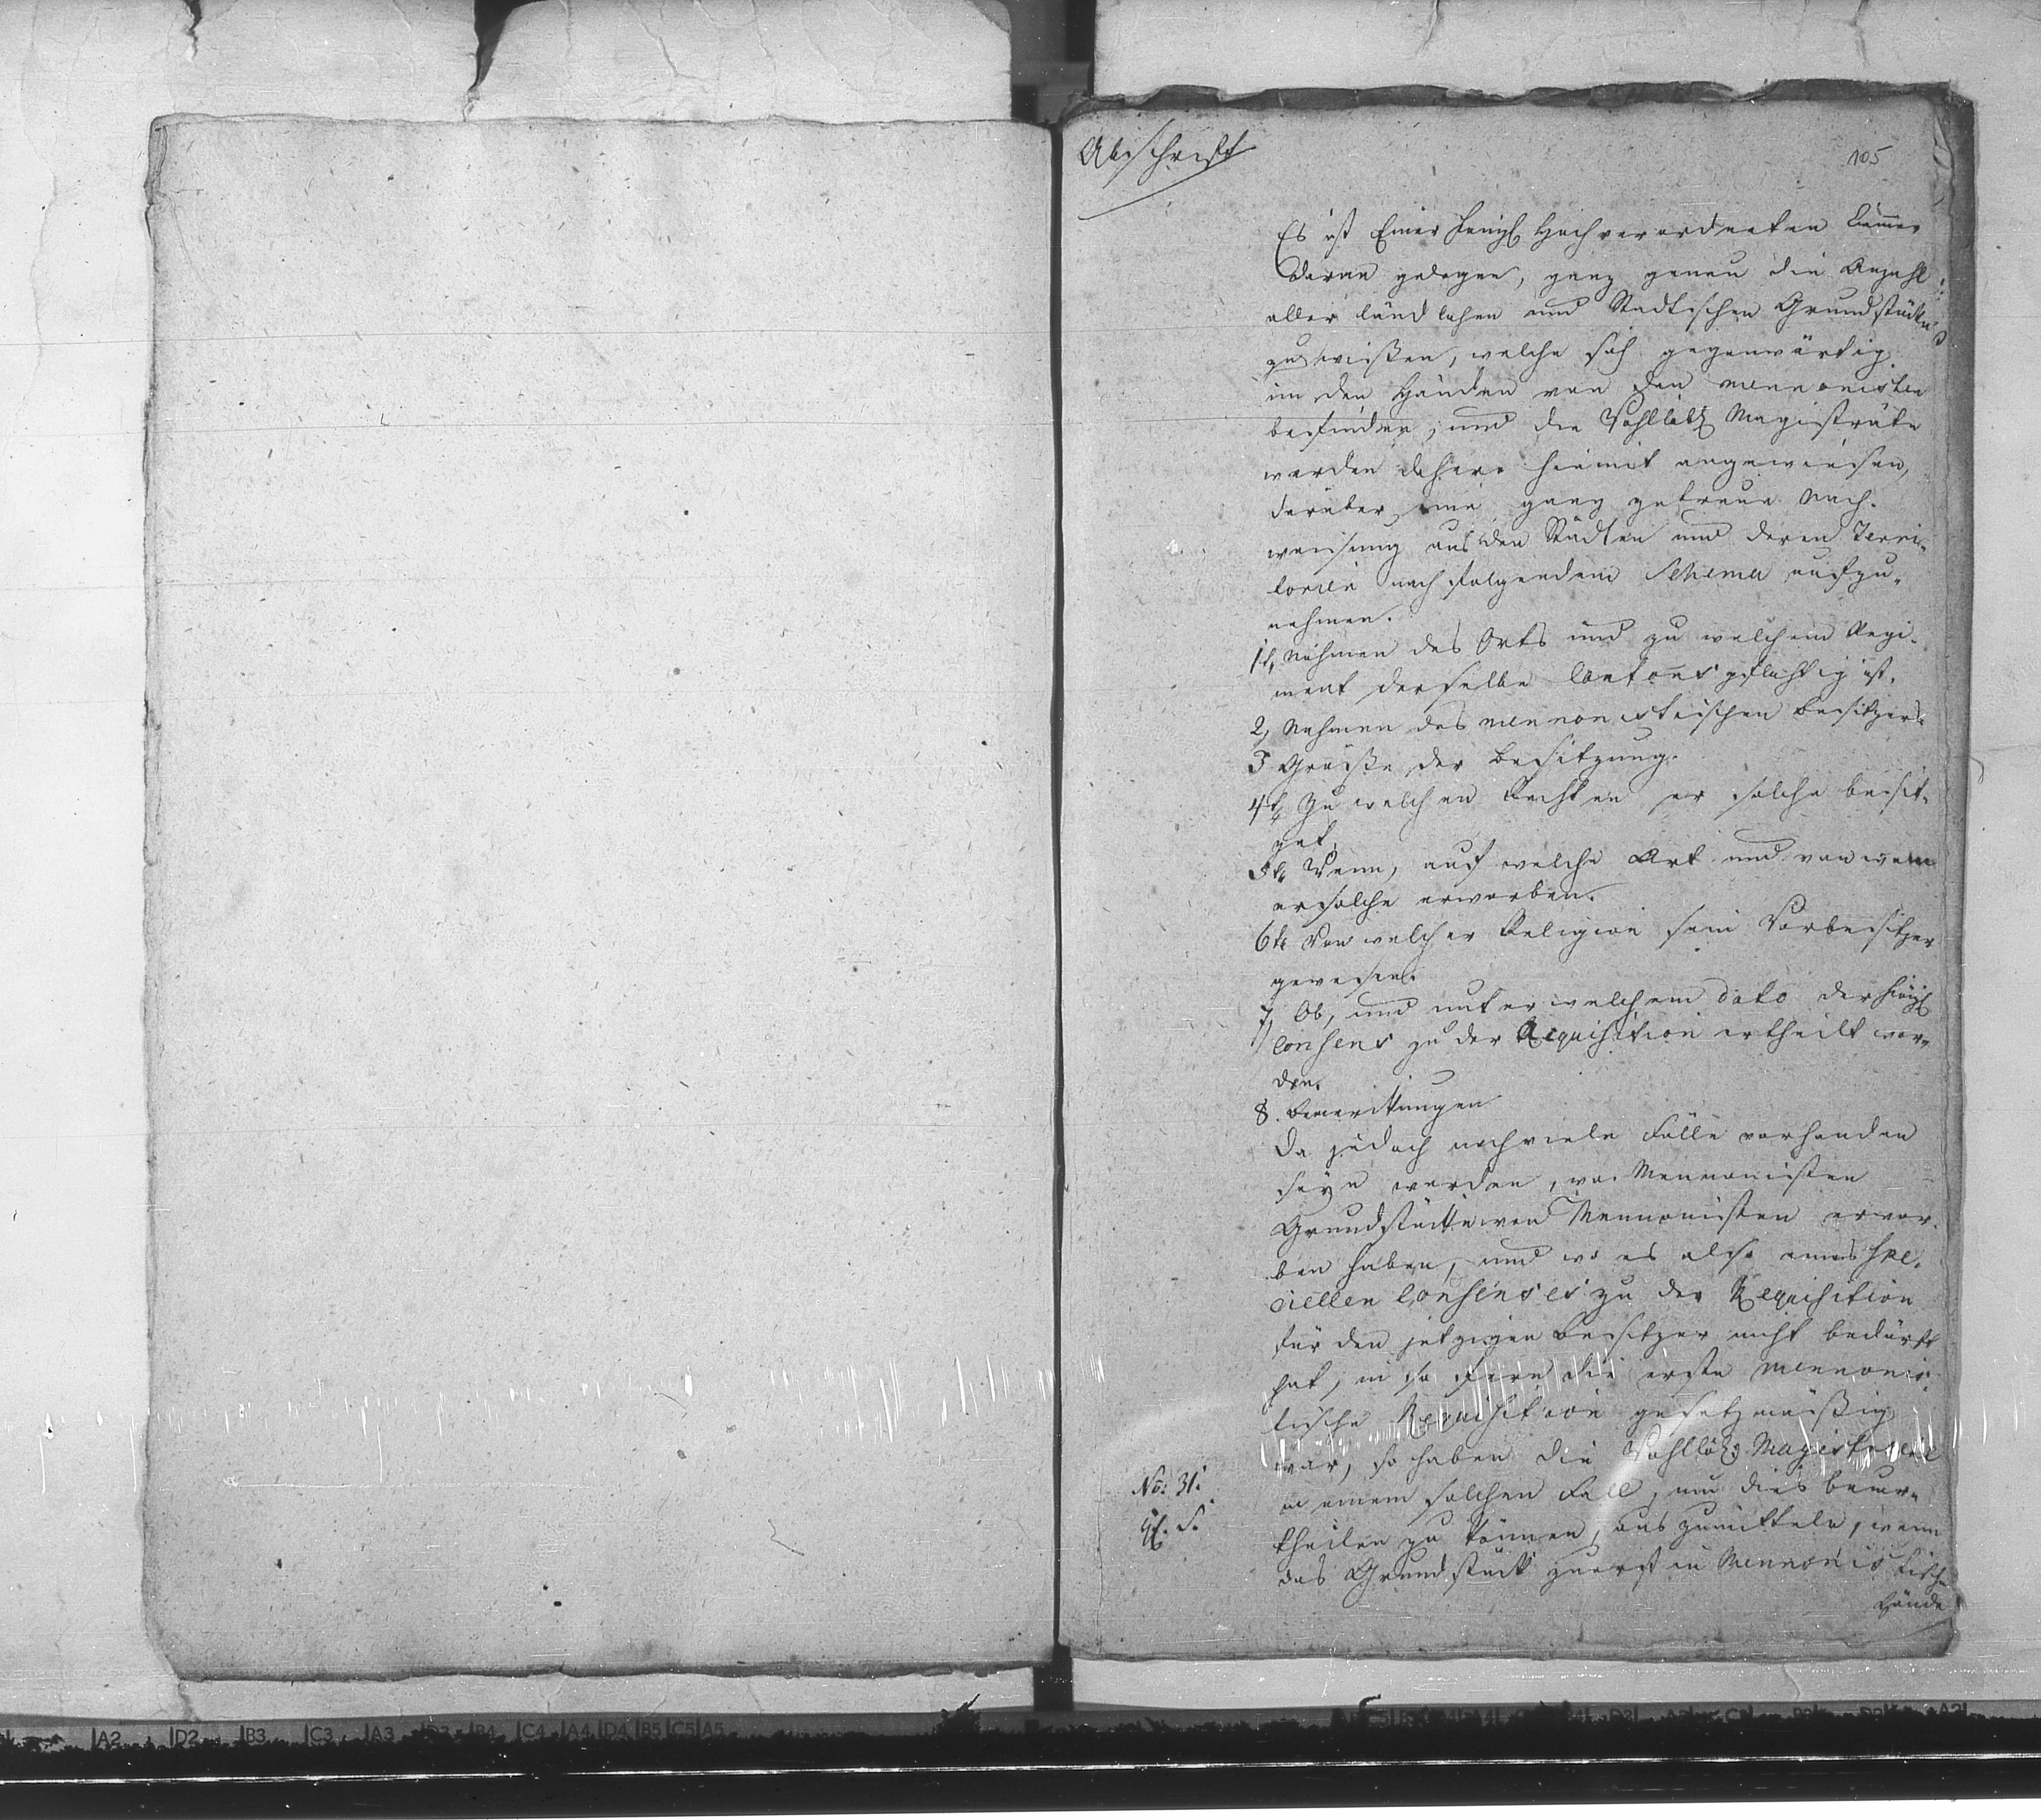 Abschrift
105
Es ist Einer Königl Hochverordneten Cammer
daran gelegen, ganz genau die Anzahl
aller ländlichen und Stadtischen Grundstücke
zu wißen, welche sich gegenwärtig
in den Händen von den mennonisten
befinden, und die Wohllöbl Magisträte
werden dahero hiemit angewiesen,
darüber eine ganz getreue Nach-
weisung aus den Städten und deren Terri-
torien nach folgendem Schema aufzu-
nehmen.
1t, Nahmen des Orts und zu welchem Regi-
ment derselbe Cantons pflichtig ist.
2, Nahmen des mennonistischen Besitzers.
3 Größe der Besitzung.
4t, Zu welchen Rechten er solche besit-
zet,
5te Wenn, auf welche Art und von wem
er solche erworben.
6te Von welcher Religion sein Vorbesitzer
gewesen.
7, Ob, und unter welchem dato der Königl
Consens zu der Acquisition ertheilt wor-
den.
8. Bemerkungen
Da jedoch noch viele Fälle vorhanden
seyn werden, wo Mennonisten
Grundstücke von Mennonisten erwor-
ben haben, und wo es also eines Spe-
ciellen Consenses zu der Acquisition
für den jetzigen Besitzer nicht bedurft
hat, in so fern die erste mennonis-
tische Acquisition gesetzmäßig
war, so haben die Wohllöbl Magistraete
in einem solchen Fall, um dies beur-
theilen zu können, auszumitteln, wenn
das Grundstück zuerst in Mennonistische
Hände
No: 31.